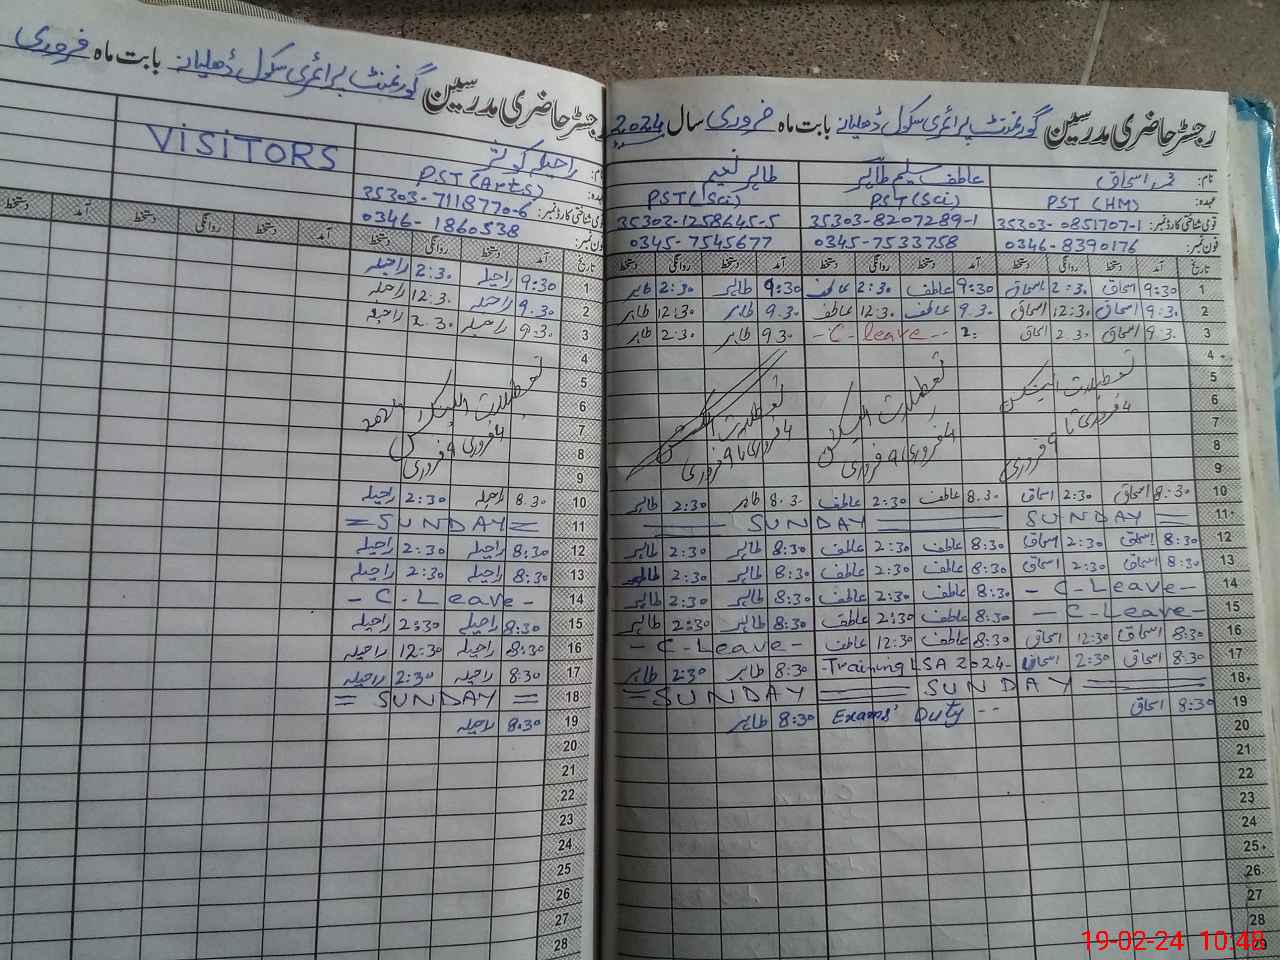 رجسٹر حاضری مدرسین گورنمنٹ پرائمری سکول ڈھلیانہ بابت ماہ فروری سال 2024
نام: محمد اسحاق عاطف سلیم طاہر طاہر نعیم
عہدہ: PST (HM) PST (Sci) PST (Sci)
قومی شناختی کارڈ نمبر: 35303-0851707-1 35303-8207289-1 35303-1258645-5
فون نمبر: 0346-8390176 0345-7533758 0345-7545677
تاریخ آمد دستخط روانگی دستخط آمد دستخط روانگی دستخط آمد دستخط روانگی دستخط
1 9:30 اسحاق 2:30 اسحاق 9:30 عاطف 2:30 عاطف 9:30 طاہر 2:30 طاہر
2 9:30 اسحاق 12:30 اسحاق 9.30 عاطف 12:30 عاطف 9.30 طاہر 12:30 طاہر
3 9:30 اسحاق 2.30 اسحاق - C - leave - - 9.30 طاہر 2:30 طاہر
4
5 تعطیلات الیکشن تعطیلات الیکشن تعطیلات الیکشن
6
7 4 فروری تا 9 فروری 4 فروری 9 فروری 4 فروری تا 9 فروری
8
9
10 8:30 اسحاق 2:30 اسحاق 8.30 عاطف 2:30 عاطف 8.30 طاہر 2:30 طاہر
11 SUNDAY SUNDAY
12 8:30 اسحاق 2:30 اسحاق 8:30 عاطف 2:30 عاطف 8:30 طاہر 2:30 طاہر
13 8:30 اسحاق 2:30 اسحاق 8:30 عاطف 2:30 عاطف 8:30 طاہر 2:30 طاہر
14 - C - Leave - 8:30 عاطف 2:30 عاطف 8:30 طاہر 2:30 طاہر
15 - C - Leave - 8:30 عاطف 2:30 عاطف 8:30 طاہر 2:30 طاہر
16 8:30 اسحاق 12:30 اسحاق 8:30 عاطف 12:30 عاطف - C - Leave -
17 8:30 اسحاق 2:30 اسحاق -Training LSA 2024- 8:30 طاہر 2:30 طاہر
18 SUNDAY SUNDAY
19 8:30 اسحاق Exams' Duty -- 8:30 طاہر
20
21
22
23
24
25
26
27
28
رجسٹر حاضری مدرسین گورنمنٹ پرائمری سکول ڈھلیانہ بابت ماہ فروری
نام: راحیلہ کوثر VISITORS
عہدہ: PST (Arts)
قومی شناختی کارڈ نمبر: 35303-7118770-6
فون نمبر: 0346-1860538
تاریخ آمد دستخط روانگی دستخط آمد دستخط روانگی دستخط آمد دستخط
1 9:30 راحیلہ 2:30 راحیلہ
2 9.30 راحیلہ 12.30 راحیلہ
3 9:30 راحیلہ 2.30 راحیلہ
4
5 تعطیلات الیکشن
6
7 4 فروری 9 فروری
8
9
10 8.30 راحیلہ 2:30 راحیلہ
11 = SUNDAY =
12 8:30 راحیلہ 2:30 راحیلہ
13 8:30 راحیلہ 2:30 راحیلہ
14 - C - Leave -
15 8:30 راحیلہ 2:30 راحیلہ
16 8:30 راحیلہ 12:30 راحیلہ
17 8:30 راحیلہ 2:30 راحیلہ
18 = SUNDAY =
19 8:30 راحیلہ
20
21
22
23
24
25
26
27
28
19-02-24 10:48